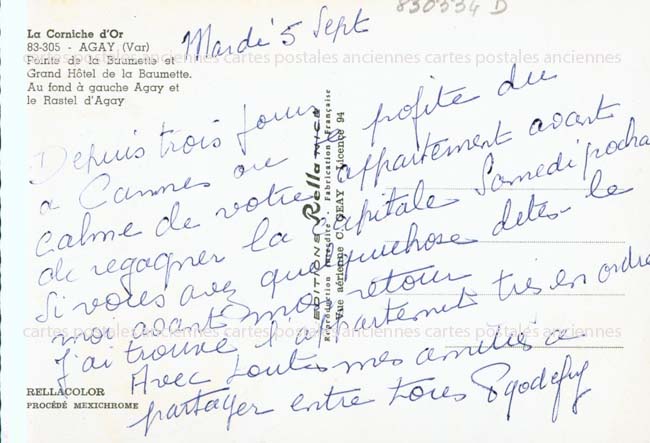 830334 D
Mardi 5 Sept
La Corniche d'Or
83-305 - AGAY (Var)
Pointe de la Baumette et
Grand Hôtel de la Baumette.
Au fond à gauche Agay et
le Rastel d'Agay
cartes postales anciennes cartes postales anciennes cartes postales anciennes
Depuis trois jours
à Cannes ou je profite du
calme de votre appartement avant
de regagner la capitale Samedi prochain
Si vous avez quelquechose dites-le
moi avant mon retour
J'ai trouvé l'appartement très en ordre
Avec toutes mes amitiés à
partager entre tous
EDITIONS Rella NICE
Reproduction Interdite - Fabrication Française
Vue aérienne C. GEAY - Licence 94
cartes postales anciennes cartes postales anciennes cartes postales anciennes
RELLACOLOR
PROCÉDÉ MEXICHROME